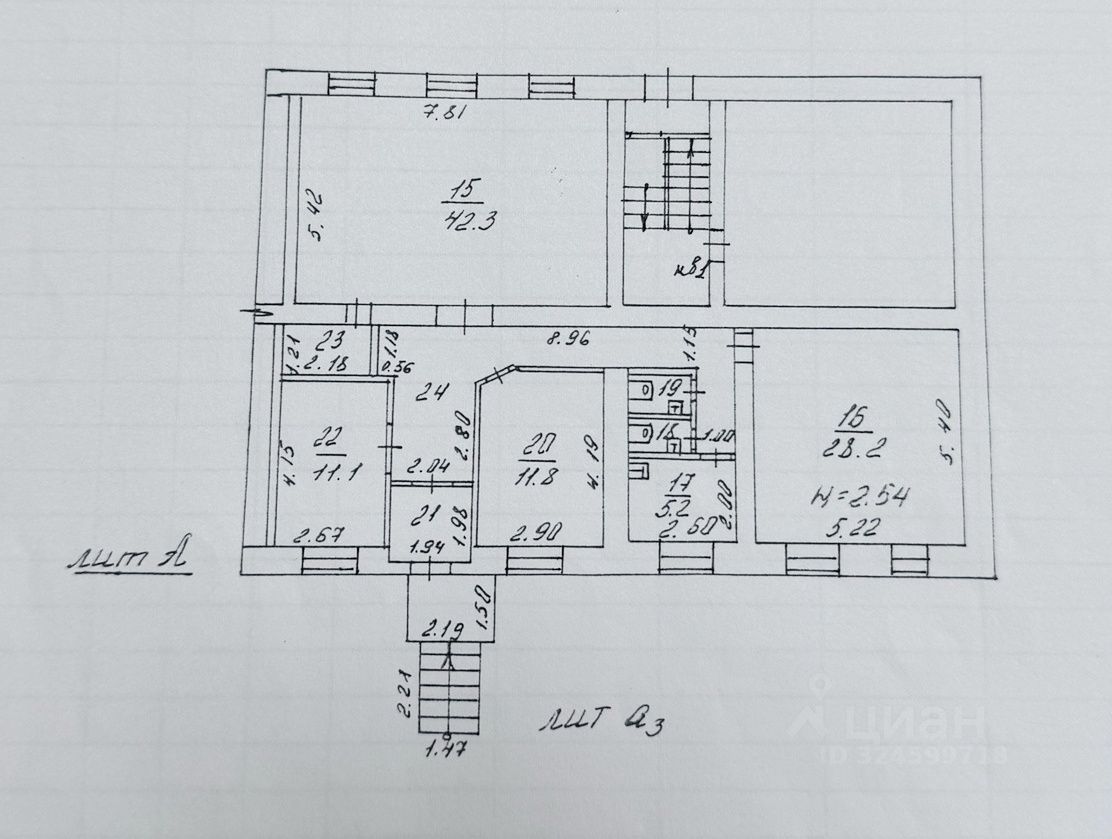 7.81
15
42.3
5.42
нв1
23
2.18
1.21
1.18
0.56
8.96
1.15
24
2.80
2.04
22
11.1
4.15
2.67
21
1.98
1.94
20
11.8
4.19
2.90
19
18
1.00
17
5.2
2.60
2.00
16
28.2
5.40
H=2.54
5.22
лит А
1.50
2.19
2.21
1.47
лит а3
циан
ID 324599718